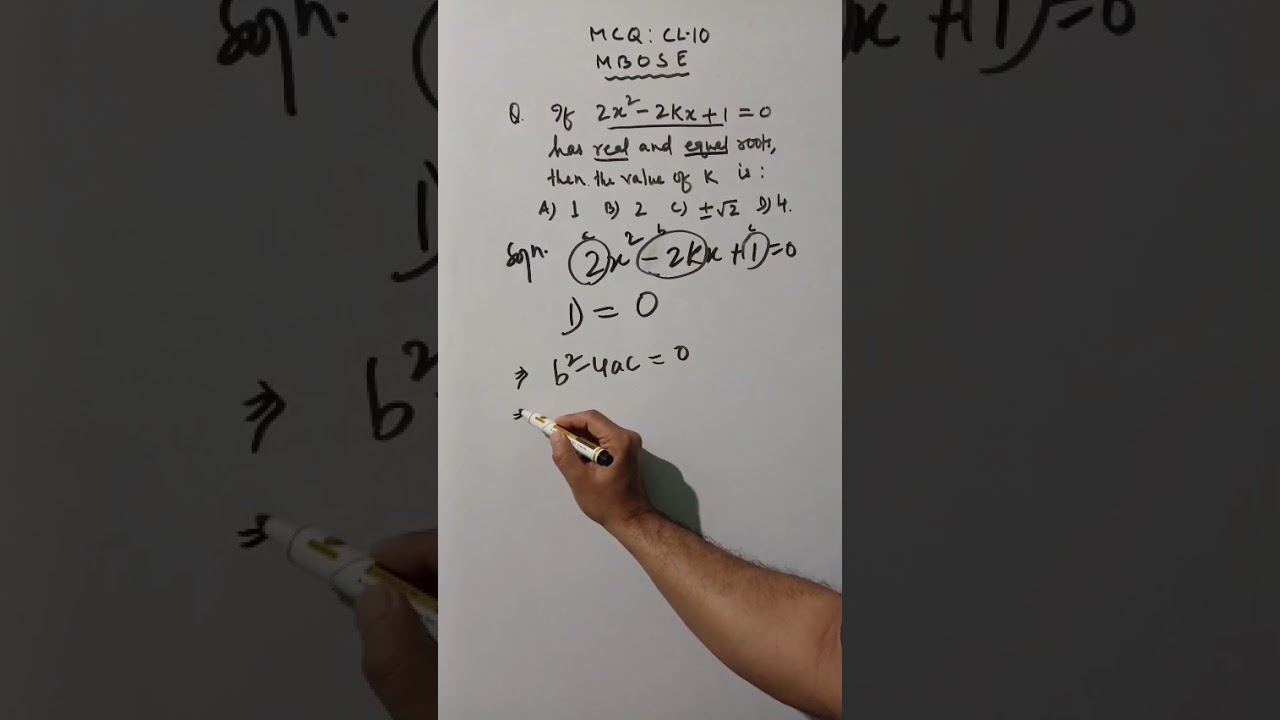 MCQ: CL-10
MBOSE
Q. If 2x² - 2Kx + 1 = 0
has real and equal roots,
then the value of K is :
A) 1 B) 2 C) ±√2 D) 4.
Soln. 2x² - 2Kx + 1 = 0
a b c
D = 0
⇒ b² - 4ac = 0
⇒